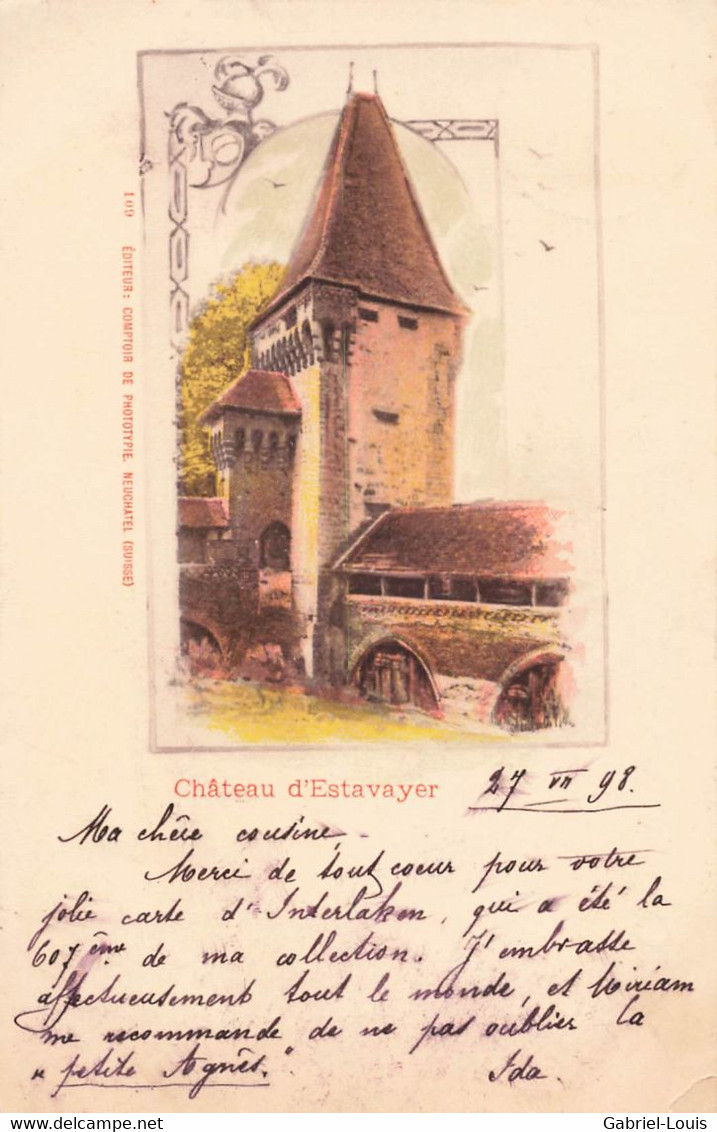 109 ÉDITEUR: COMPTOIR DE PHOTOTYPIE. NEUCHATEL (SUISSE)
Château d'Estavayer
27 VII 98.
Ma chère cousine,
Merci de tout coeur pour votre
jolie carte d'Interlaken, qui a été la
607ème de ma collection. J'embrasse
affectueusement tout le monde, et Miriam
me recommande de ne pas oublier la
"petite Agnès."
Ida.
delcampe.net
Gabriel-Louis